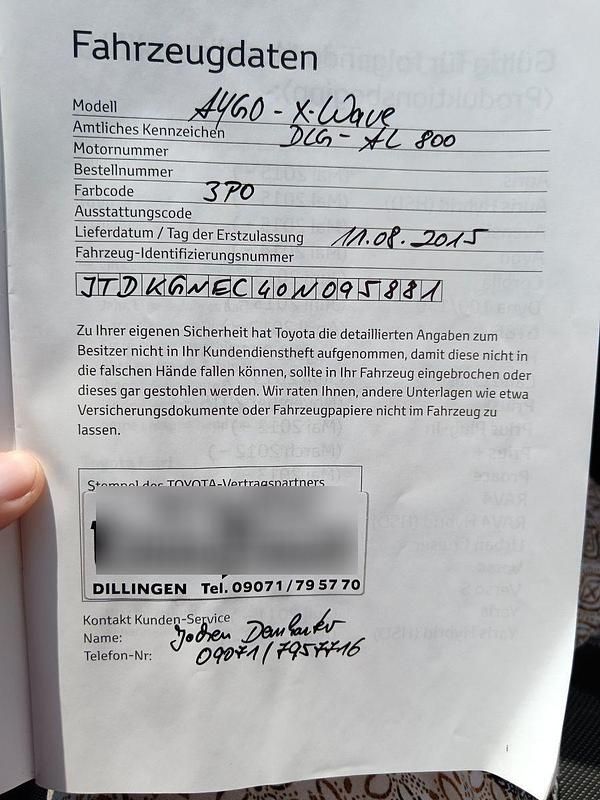 Fahrzeugdaten
Modell AYGO - X-Wave
Amtliches Kennzeichen DLG - AL 800
Motornummer
Bestellnummer
Farbcode 3P0
Ausstattungscode
Lieferdatum / Tag der Erstzulassung 11.08.2015
Fahrzeug-Identifizierungsnummer
JTDKGNEC40N095881
Zu Ihrer eigenen Sicherheit hat Toyota die detaillierten Angaben zum
Besitzer nicht in Ihr Kundendienstheft aufgenommen, damit diese nicht in
die falschen Hände fallen können, sollte in Ihr Fahrzeug eingebrochen oder
dieses gar gestohlen werden. Wir raten Ihnen, andere Unterlagen wie etwa
Versicherungsdokumente oder Fahrzeugpapiere nicht im Fahrzeug zu
lassen.
Stempel des TOYOTA-Vertragspartners
DILLINGEN Tel. 09071/795770
Kontakt Kunden-Service
Name: Jochen
Telefon-Nr: 09071/7957716
i